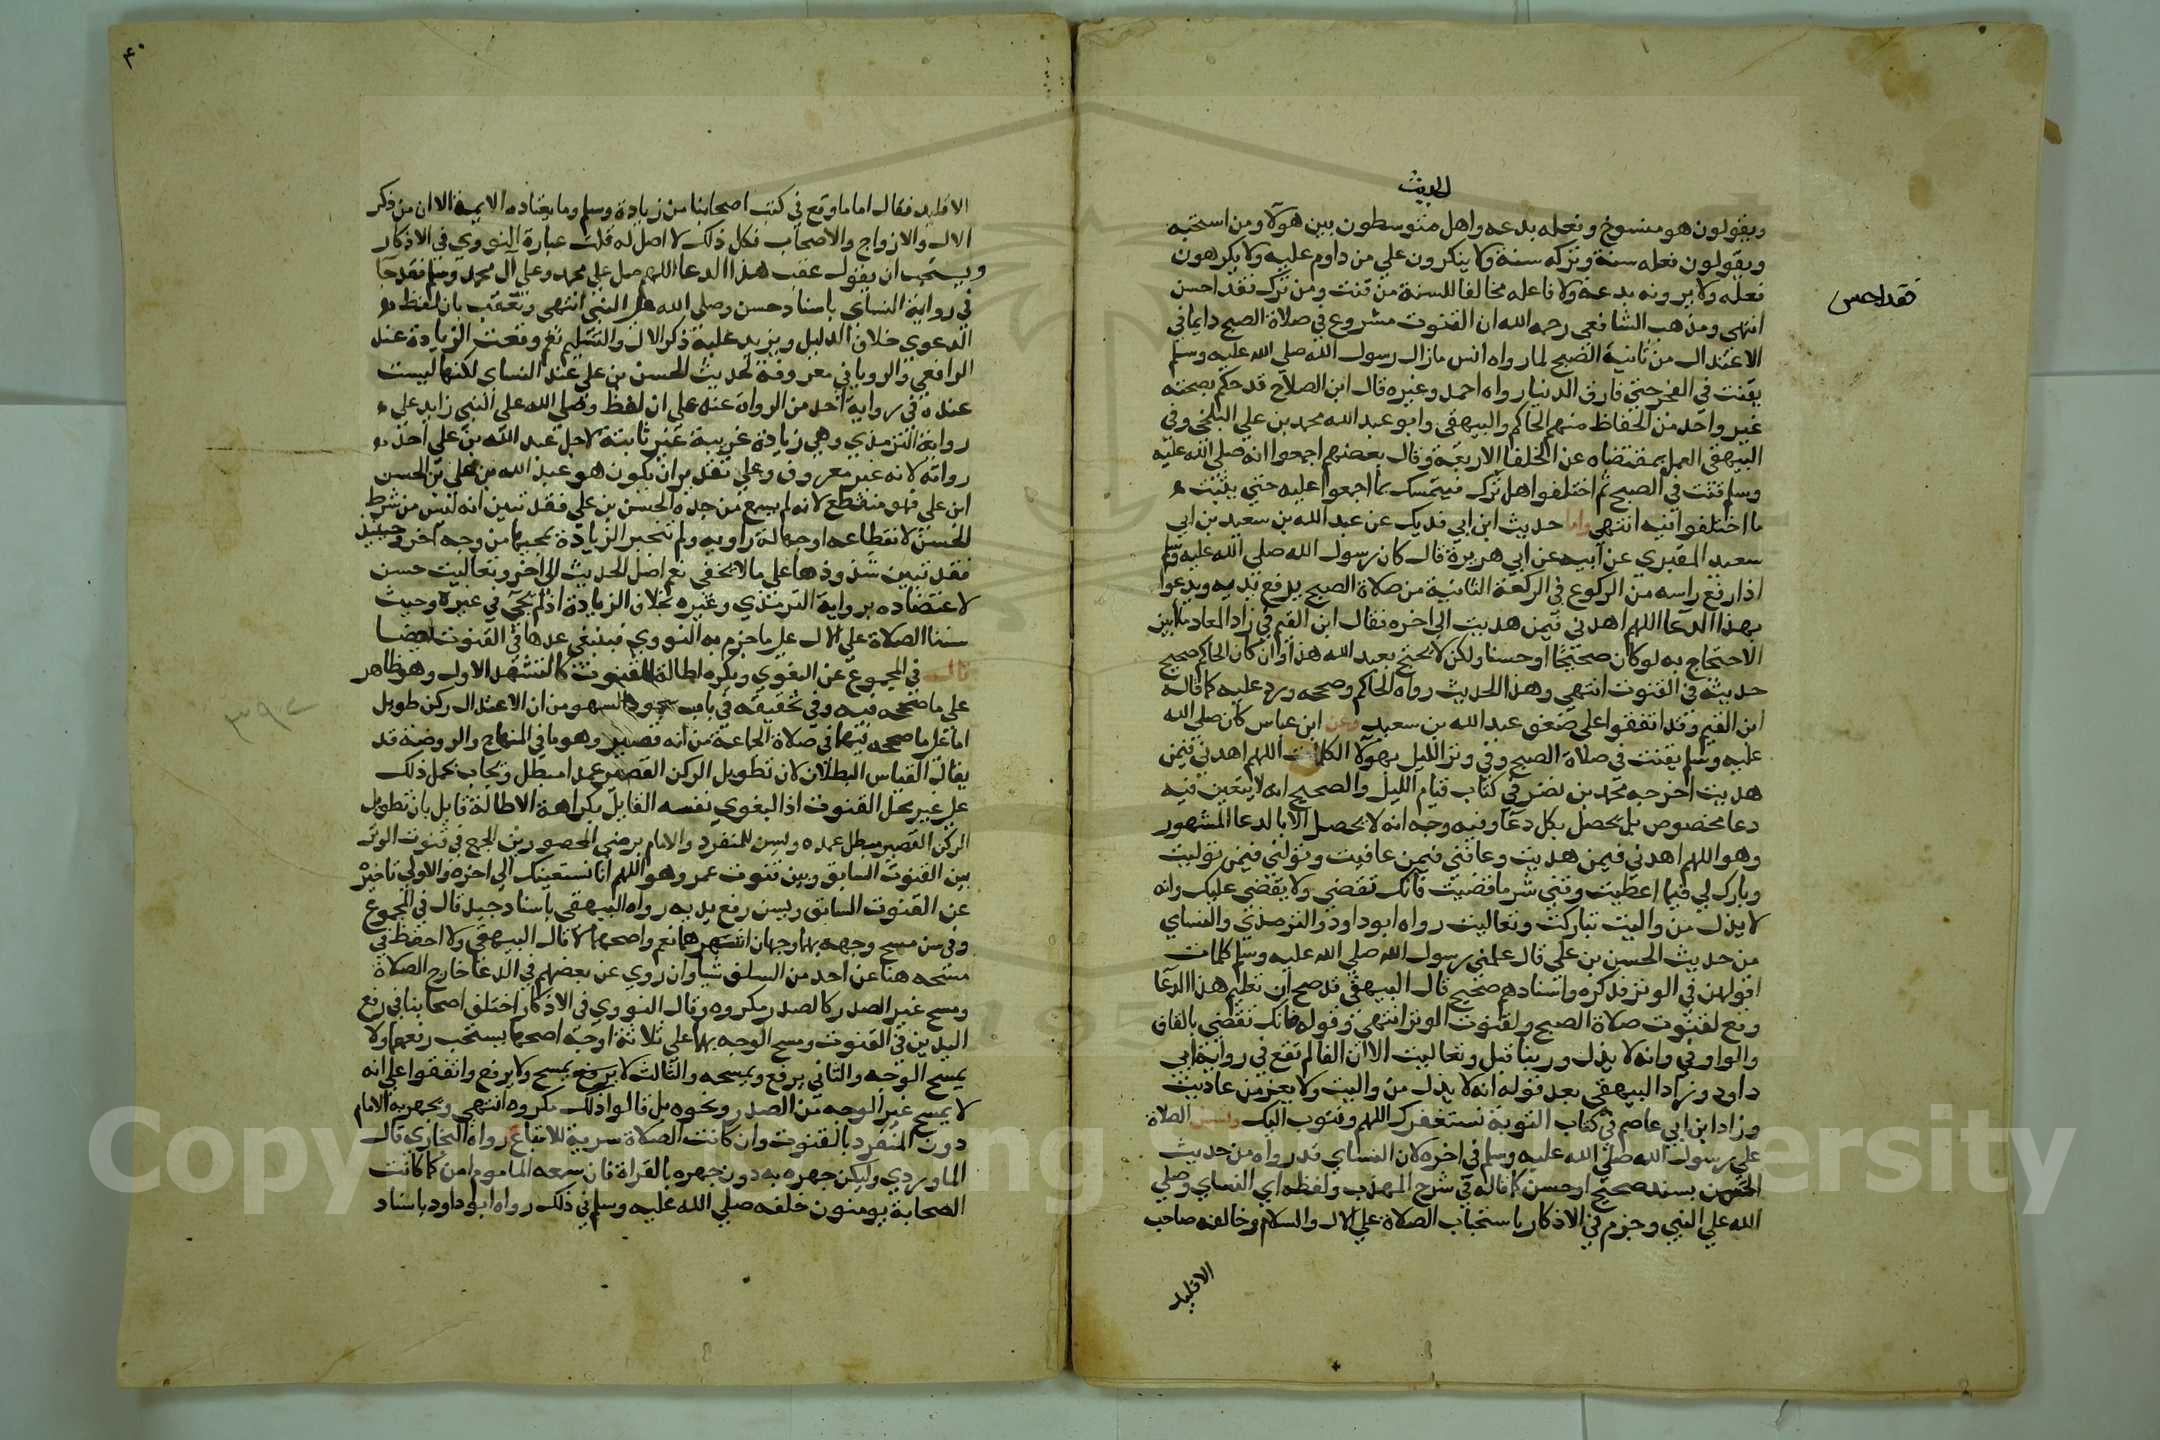 الحديث
ويقولون هو منسوخ وفعله بدعه واهل متوسطون بين هولا ومن استحبه
ويقولون فعله سنة وتركه سنة ولا ينكرون علي من داوم عليه ولا يكرهون
فعله ولا يرونه بدعة ولا فاعله مخالفا للسنة من قنت ومن ترك فقد احسن
فقد احسن
انتهي ومذهب الشافعي رحمه الله ان القنوت مشروع في صلاة الصبح دايما في
الاعتدال من ثانية الصبح لما رواه انس مازال رسول الله صلي الله عليه وسلم
يقنت في الفجر حتي فارق الدنيا رواه احمد وغيره قال ابن الصلاح قد حكم بصحته
غير واحد من الحفاظ منهم الحاكم والبيهقي وابو عبد الله محمد بن علي البلخي وفي
البيهقي العمل بمقتضاه عن الخلفا الاربعة وقال بعضهم اجمعوا انه صلي الله عليه
وسلم قنت في الصبح ثم اختلفوا هل ترك فيتمسك بما اجمعوا عليه حتي يثبت
ما اختلفوا فيه انتهي واما حديث ابن ابي فديك عن عبد الله بن سعيد بن ابي
سعيد المقبري عن ابيه عن ابي هريرة قال كان رسول الله صلي الله عليه وسلم
اذا رفع راسه من الركوع في الركعة الثانية من صلاة الصبح يرفع يديه ويدعوا
بهذا الدعا اللهم اهدني فيمن هديت الي اخره فقال ابن القيم في زاد المعاد ما ابين
الاحتجاج به لو كان صحيحا او حسنا ولكن لا يحتج بعبد الله هذا وان كان الحاكم صحيح
حديثه في القنوت انتهي وهذا الحديث رواه الحاكم وصححه ورد عليه كما قاله
ابن القيم وقد اتفقوا علي ضعف عبد الله بن سعيد وعن ابن عباس كان صلي الله
عليه وسلم يقنت في صلاة الصبح وفي وتر الليل بهولا الكلمات اللهم اهدني فيمن
هديت اخرجه محمد بن نصر في كتاب قيام الليل والصحيح انه لا يتعين فيه
دعا مخصوص بل يحصل بكل دعا وفيه وجه انه لا يحصل الا بالدعا المشهور
وهو اللهم اهدني فيمن هديت وعافني فيمن عافيت وتولني فيمن توليت
وبارك لي فيما اعطيت وقني شر ما قضيت فانك تقضي ولا يقضي عليك وانه
لا يذل من واليت تباركت وتعاليت رواه ابو داود والترمذي والنساي
من حديث الحسن بن علي قال علمني رسول الله صلي الله عليه وسلم كلمات
اقولهن في الوتر فذكره واسنادهم صحيح قال البيهقي قد صح ان تعليم هذا الدعا
وقع لقنوت صلاة الصبح ولقنوت الوتر انتهي وقوله فانك تقضي بالفا
والواو في وانه لا يذل وربنا قبل وتعاليت الا ان الفا لم تقع في رواية ابي
داود وزاد البيهقي بعد قوله انه لا يذل من واليت ولا يعز من عاديت
وزاد ابن ابي عاصم في كتاب التوبة نستغفرك اللهم ونتوب اليك وتسن الصلاة
علي رسول الله صلي الله عليه وسلم في اخره لان النساي قد رواه من حديث
الحسن بسند صحيح او حسن كما قاله في شرح المهذب ولفظه اي النساي وصلي
الله علي النبي وجزم في الاذكار باستحباب الصلاة علي الال والسلام وخالفه صاحب
الاقليد
٤٠
الاقليد فقال اما ما وقع في كتب اصحابنا من زيادة وسلم وما يعتاده الايمة الا ان من ذكر
الال والازواج والاصحاب فكل ذلك لا اصل له قلت عبارة النووي في الاذكار
ويستحب ان يقول عقب هذا الدعا اللهم صل علي محمد وعلي آل محمد وسلم فقد جا
في رواية النساي باسناد حسن وصلي الله علي النبي انتهي وتعقب بان لفظ
الدعوي خلاف الدليل ويزيد عليه ذكر الال والتسليم نعم وقعت الزيادة عند
الرافعي والروياني معروفة لحديث الحسن بن علي عند النساي لكنها ليست
عنده في رواية احد من الرواة عنه علي ان لفظ وصلي الله علي النبي زايد علي
رواية الترمذي وهي زيادة غريبة غير ثابتة لاجل عبد الله بن علي احد
رواته لانه غير معروف وعلي تقدير ان يكون هو عبد الله بن علي بن الحسن
ابن علي فهو منقطع لانه لم يسمع من جده الحسن بن علي فقد تبين انه ليس من شرط
الحسن لانقطاعه او جهالة راويه ولم تنجبر الزيادة بمجيها من وجه آخر وحينيذ
فقد تبين شذوذها علي ما لا يخفي نعم اصل الحديث الي اخر وتعاليت حسن
لاعتضاده برواية الترمذي وغيره بخلاف الزيادة اذ لم تجي في غيره وحيث
سننا الصلاة علي الال علي ما جزم به النووي فينبغي عدها في القنوت بعضا
قال في المجموع عن البغوي ويكره اطالة القنوت كالتشهد الاول وهو ظاهر
علي ما صححه فيه وفي تحقيقه في باب سجود السهو من ان الاعتدال ركن طويل
اما علي ما صححه فيها في صلاة الجماعة من انه قصير وهو ما في المنهاج والروضة قد
يقال القياس البطلان لان تطويل الركن القصير عمدا مبطل ويجاب بحمل ذلك
علي غير محل القنوت اذ البغوي نفسه القايل بكراهة الاطالة قايل بان تطويل
الركن القصير مبطل عمده ويسن للمنفرد والامام برضي المحصورين الجمع في قنوت الوتر
بين القنوت السابق وبين قنوت عمر وهو اللهم انا نستعينك الي اخره والاولي تاخيره
عن القنوت السابق ويسن رفع يديه رواه البيهقي باسناد جيد قال في المجموع
وفي سن مسح وجهه بهما وجهان اشهرهما نعم واصحهما لا قال البيهقي ولا احفظ في
مسحه هنا عن احد من السلف شيا وان روي عن بعضهم في الدعا خارج الصلاة
ومسح غير الصدر كالصدر مكروه وقال النووي في الاذكار اختلف اصحابنا في رفع
اليدين في القنوت ومسح الوجه بهما علي ثلاثة اوجه اصحها يستحب رفعهما ولا
يمسح الوجه والثاني يرفع ويمسحه والثالث لا يرفع يمسح ولا يرفع واتفقوا علي انه
لا يمسح غير الوجه من الصدر ونحوه بل قالوا ذلك مكروه انتهي ويجهر به الامام
دون المنفرد بالقنوت وان كانت الصلاة سرية للاتباع رواه البخاري قال
الماوردي وليكن جهره به دون جهره بالقراة فان سمعه الماموم امن كما كانت
الصحابة يومنون خلفه صلي الله عليه وسلم في ذلك رواه ابو داود باسناد
Copyright © King Saud University